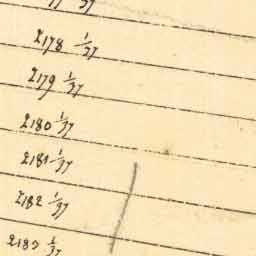 2178 1/37
2179 1/37
2180 1/37
2181 1/37
2182 1/37
2183 1/37